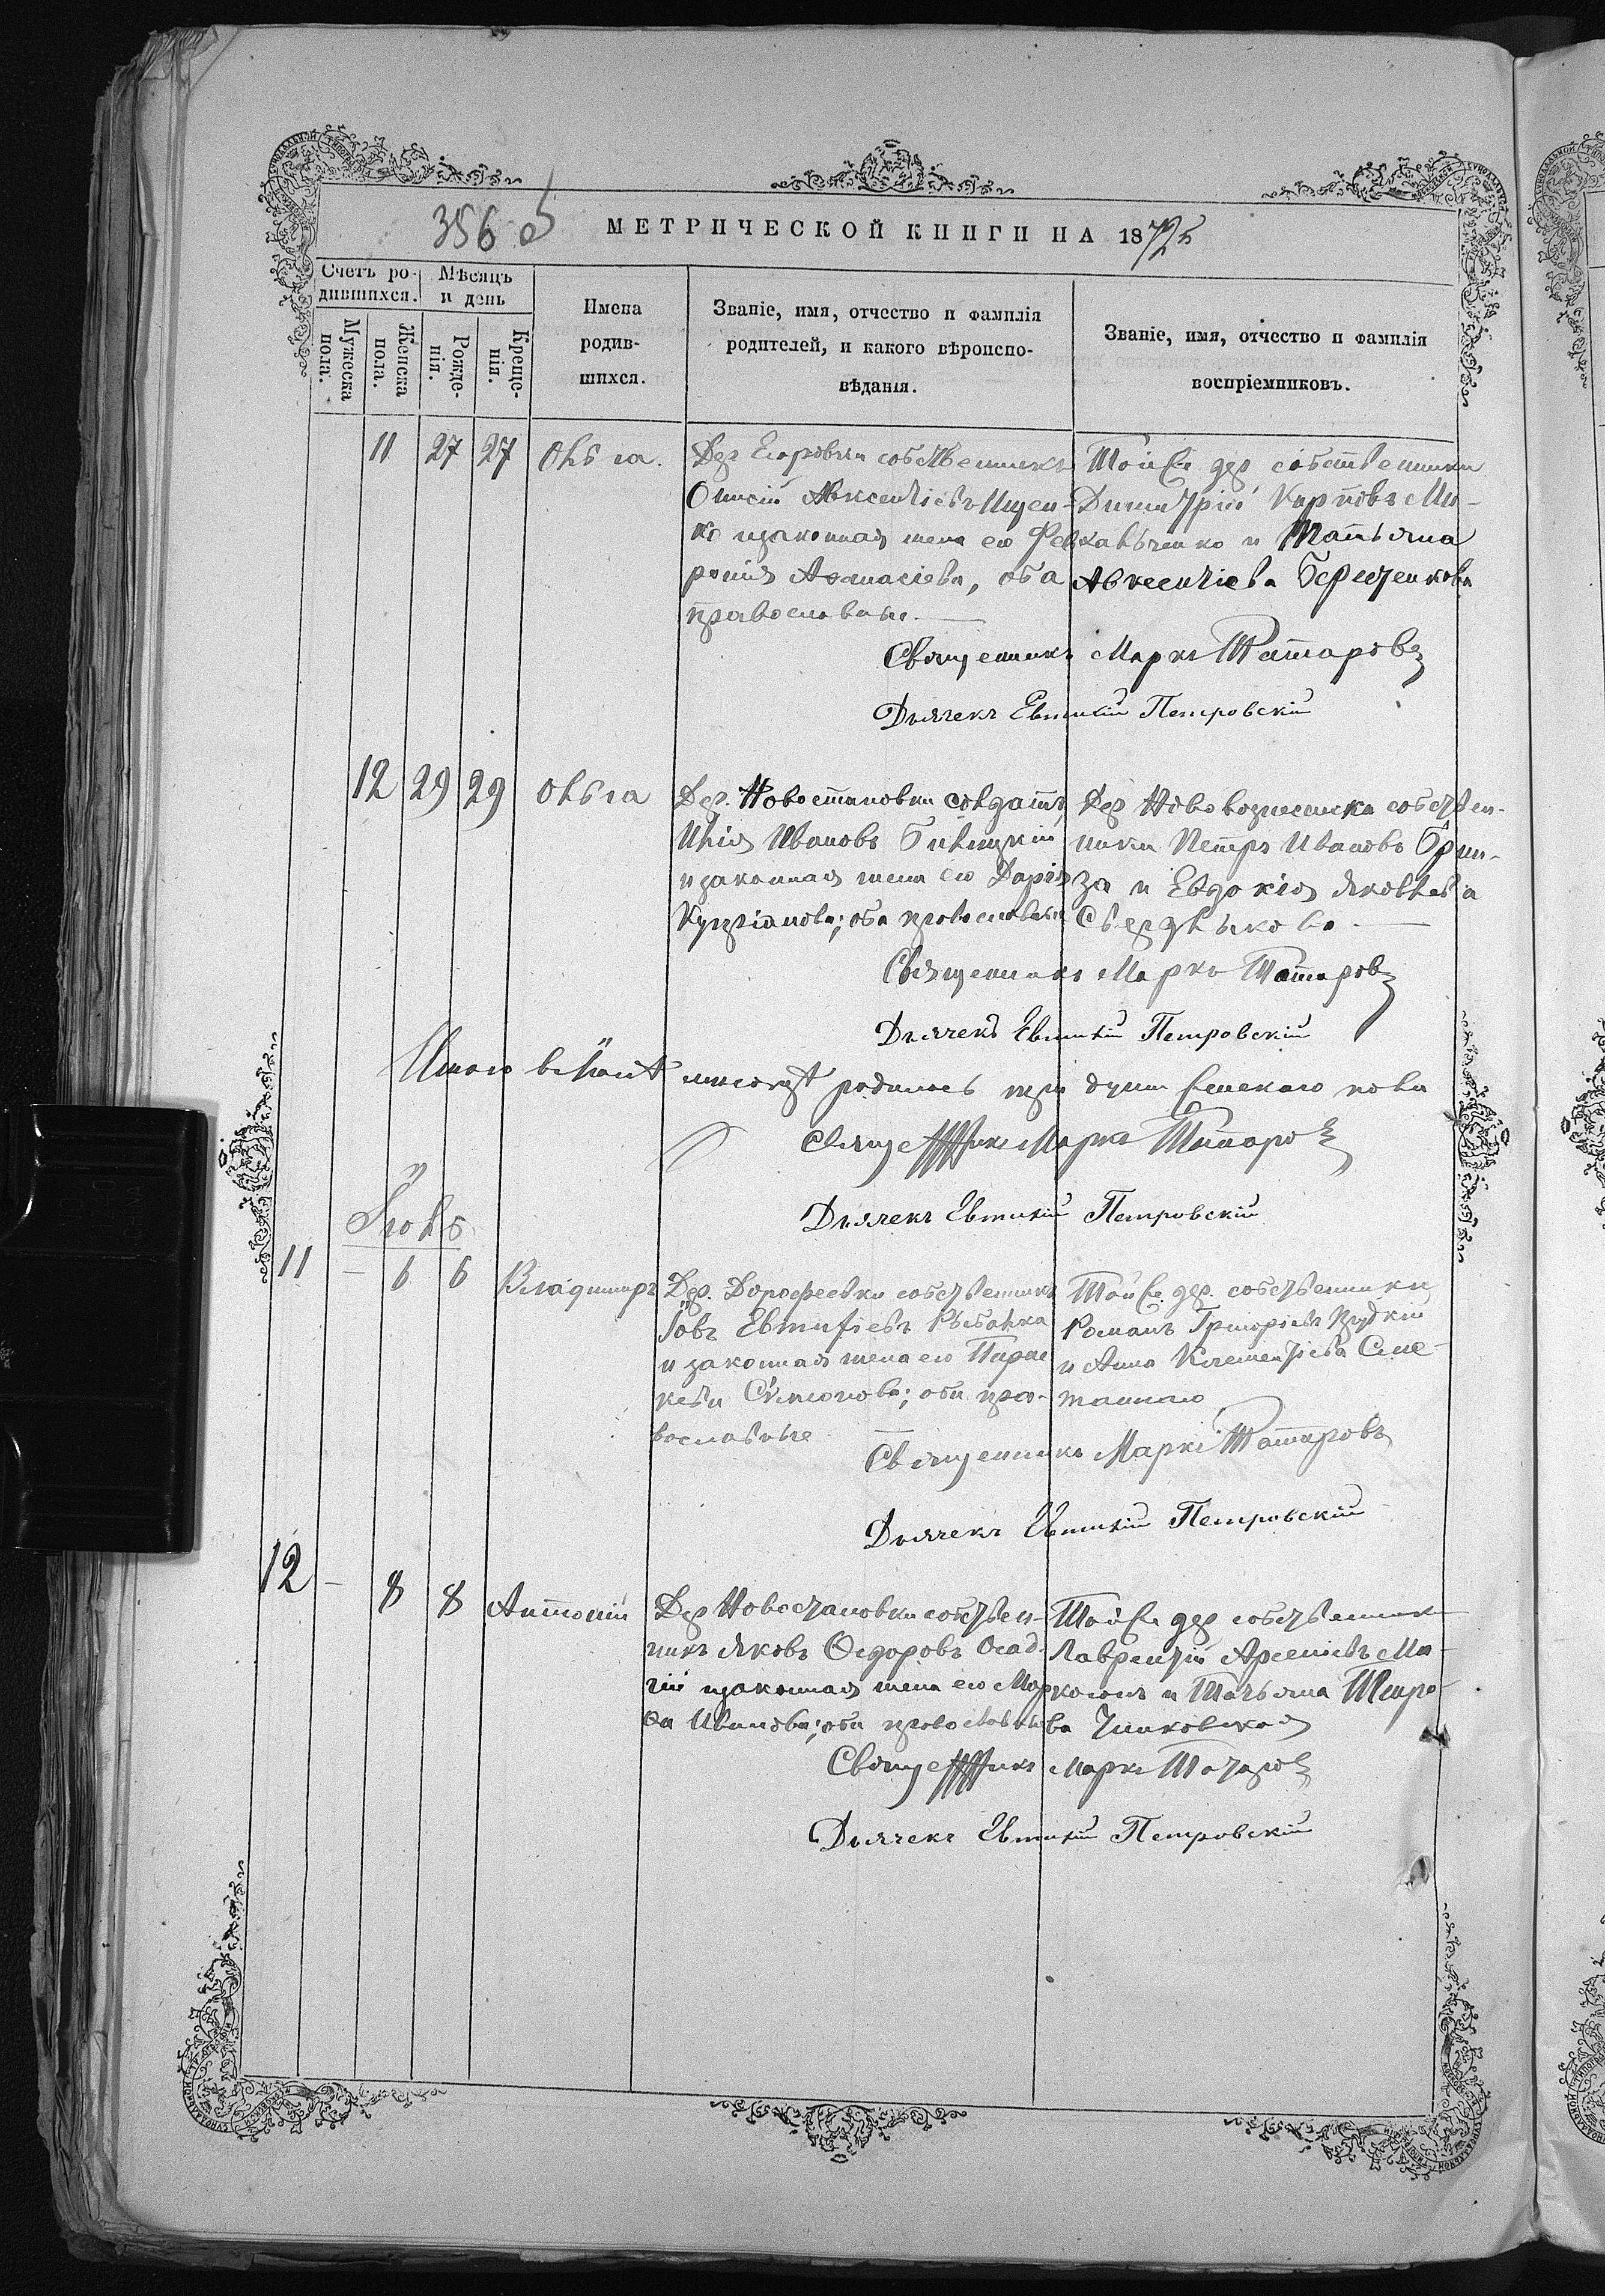 356 об
МЕТРИЧЕСКОЙ КНИГИ НА 1872
Счетъ ро-
дившихся.
Мѣсяцъ
и день
Мужеска
пола.
Женска
пола.
Рожде-
нія.
Креще-
нія.
Имена
родив-
шихся.
Званіе, имя, отчество и фамилія
родителей, и какого вѣроиспо-
вѣданія.
Званіе, имя, отчество и фамилія
воспріемниковъ.
11 27 27 Ольга.
Дер Егоровки собственникъ
Онисій Авксентіевъ Ищен-
ко и законная жена его Фев
ронія Аѳанасіева, оба
православные.
Той же дер собственники
Димитрій Карповъ Ми-
хальченко и Татьяна
Авксентіева
Священникъ Маркъ Татаровъ
Дьячекъ Евтихій Петровскій
12 29 29 Ольга
Дер. Новостановки солдатъ
Илія Ивановъ Билицкій
и законная жена его Дарія
Купріанова; оба православные
Дер Нововознесенска собствен-
ники Петръ Ивановъ
за и Евдокія Яковлева
Сердькова
Священникъ Маркъ Татаровъ
Дьячекъ Евтихій Петровскій
Итого въ Іюнѣ мѣсяцѣ родилось три души женскаго пола
Священникъ Маркъ Татаровъ
Дьячекъ Евтихій Петровскій
Іюль
11 – 6 6 Владиміръ
Дер. Дорофеевки собственникъ
Іовъ Евтифіевъ Рыбалка
и законная жена его Парас
кева Симонова; оба пра-
вославные
Той же дер. собственники
Романъ Григорьевъ
и Анна Клементіева Сме-
танино
Священникъ Маркъ Татаровъ
Дьячекъ Евтихій Петровскій
12 – 8 8 Антоній
Дер Новостановки собствен-
никъ Яковъ Ѳедоровъ Осад-
чій и законная жена его Мар
ѳа Иванова; оба православные
Той же дер собственники
Лаврентій Арсеніевъ Ма-
и Татьяна Петро-
ва
Священникъ Маркъ Татаровъ
Дьячекъ Евтихій Петровскій